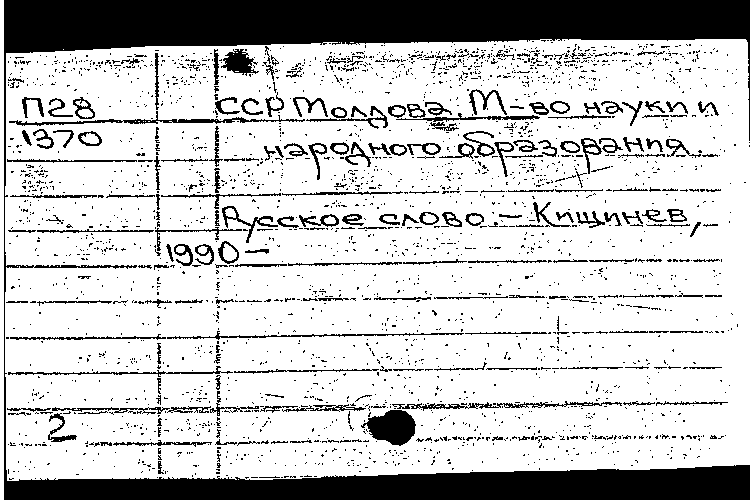 П28 ССР Молдова. М-во науки и
1370 народного образования.
Русское слово. – Кишинев,
1990 –
2